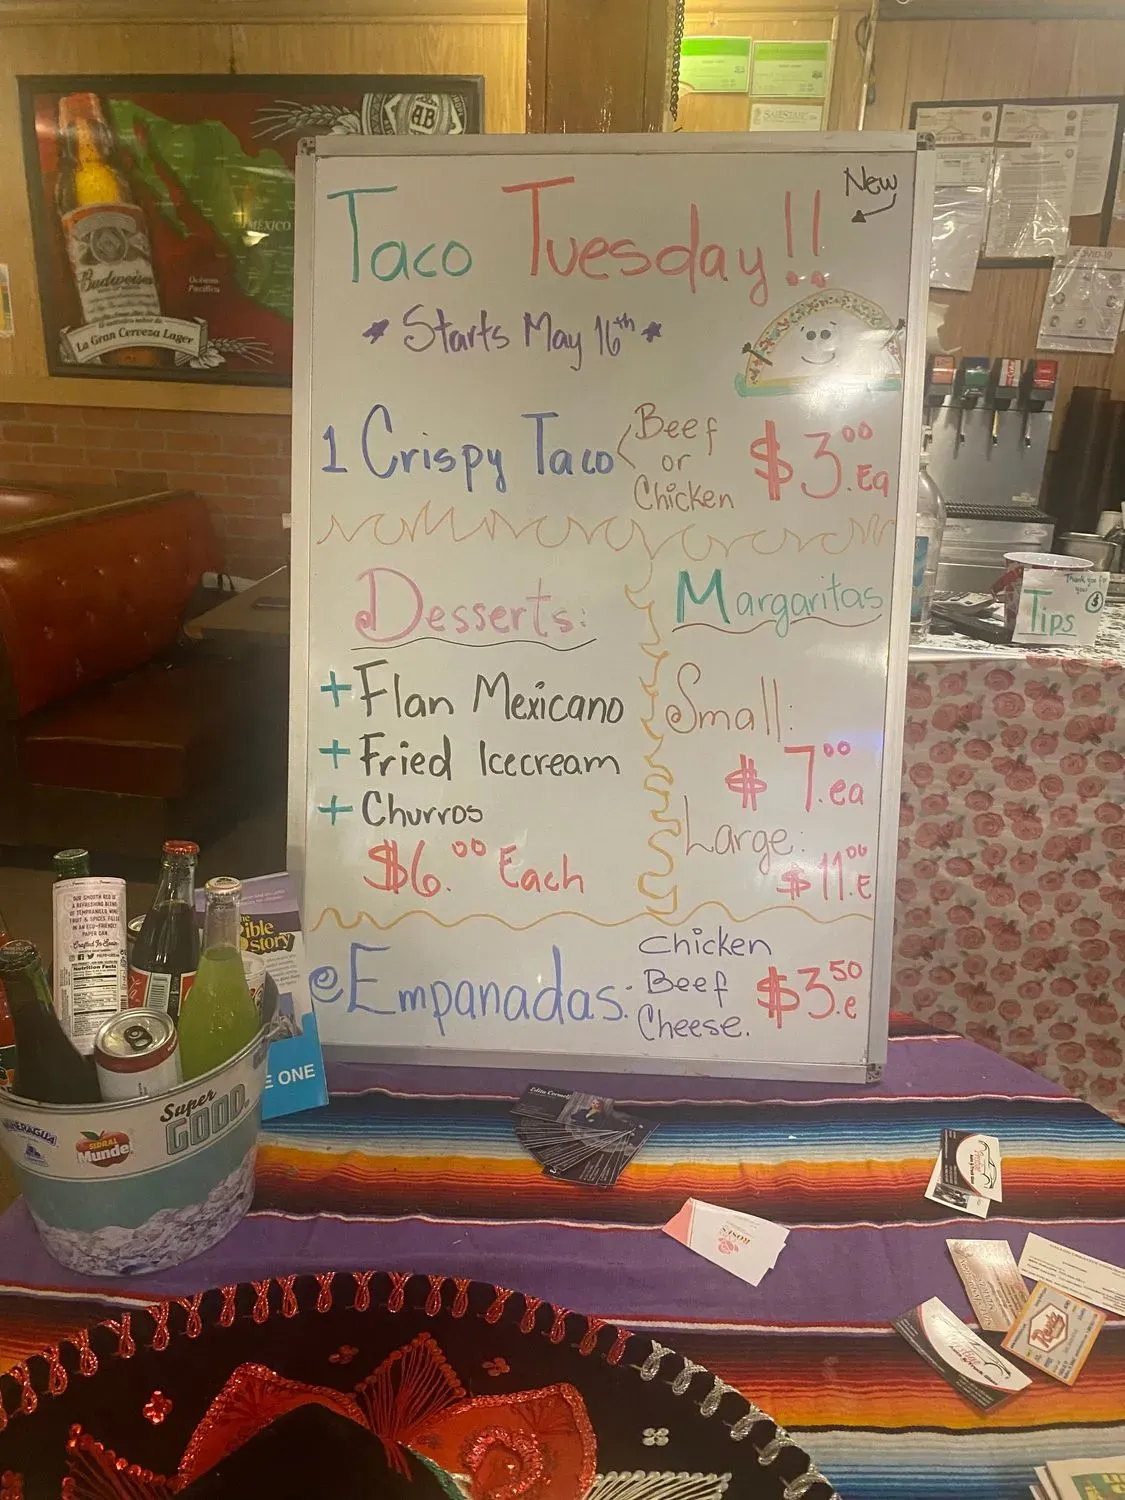 New
Taco Tuesday!!
* Starts May 16th *
1 Crispy Taco
Beef
or
Chicken
$3.00 Ea
Desserts:
+ Flan Mexicano
+ Fried Icecream
+ Churros
$6.00 Each
Margaritas
Small:
$7.00 ea
Large:
$11.00 E
eEmpanadas:
Chicken
Beef
Cheese.
$3.50 e
AB
MÉXICO
Océano
Pacífico
Budweiser
La Gran Cerveza Lager
COVID-19
Thank you for
you!
$
Tips
OUR SMOOTH RED IS
A REFRESHING BLEND
OF TEMPRANILLO WINE
FRUIT & SPICES, FILLED
IN AN ECO-FRIENDLY
PAPER CAN.
Crafted In Spain
Nutrition Facts
Bible
Story
E ONE
Super
GOOD
SIDRAL
Mundet